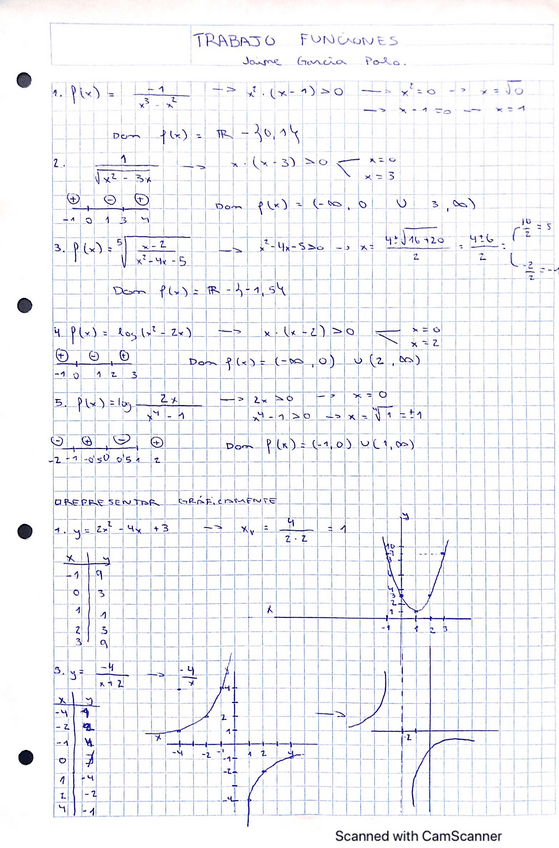 TRABAJO FUNCIONES
Jaime García Polo.
1. f(x) = -1 / x³ - x² --> x² · (x-1) > 0 --> x² = 0 -> x = √0
--> x - 1 = 0 -> x = 1
Dom f(x) = ℝ - {0, 1}
2. 1 / √x² - 3x --> x · (x-3) > 0 x = 0
x = 3
+ - +
-1 0 1 3 4
Dom f(x) = (-∞, 0 ∪ 3, ∞)
3. f(x) = ⁵√ x-2 / x²-4x-5 --> x²-4x-5>0 -> x = 4±√16+20 / 2 = 4±6 / 2 = 10/2 = 5
-2/2 = -1
Dom f(x) = ℝ - {-1, 5}
4. f(x) = log (x² - 2x) --> x · (x-2) > 0 x = 0
x = 2
+ - +
-1 0 1 2 3
Dom f(x) = (-∞, 0) ∪ (2, ∞)
5. f(x) = log 2x / x⁴ - 1 --> 2x > 0 -> x = 0
x⁴ - 1 > 0 -> x = ⁴√1 = ±1
- + - +
-2 -1 -0'5 0 0'5 1 2
Dom f(x) = (-1, 0) ∪ (1, ∞)
REPRESENTAR GRÁFICAMENTE
1. y = 2x² - 4x + 3 --> xᵥ = 4 / 2·2 = 1
x y
-1 9
0 3
1 1
2 3
3 9
y
x
10
4
3
2
1
-1 1 2 3
3. y = -4 / x+2 --> -4 / x
x y
-4
-2
-1
0
1 -4
2 -2
4 -1
x
4
2
1
-4 -2 -1 1 2 4
-1
-2
-4
-2
Scanned with CamScanner